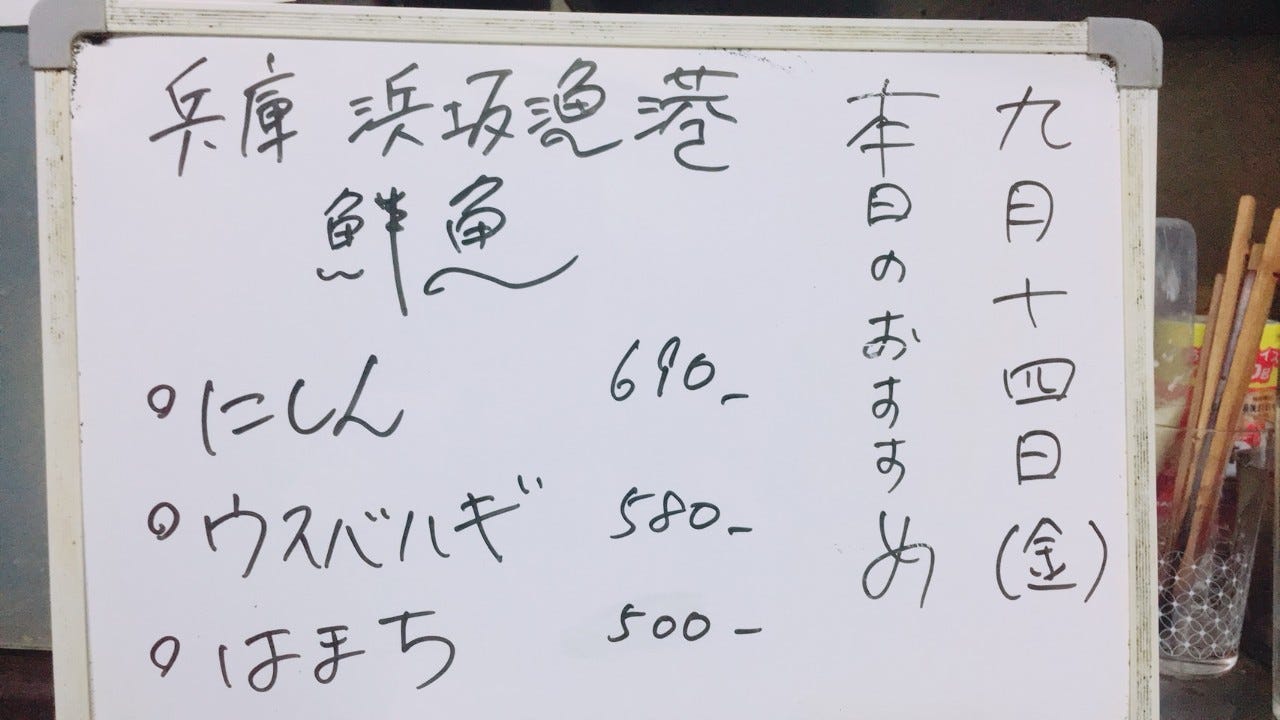 九月十四日(金)
本日のおすすめ
兵庫 浜坂漁港
鮮魚
にしん 690-
ウスバハギ 580-
はまち 500-